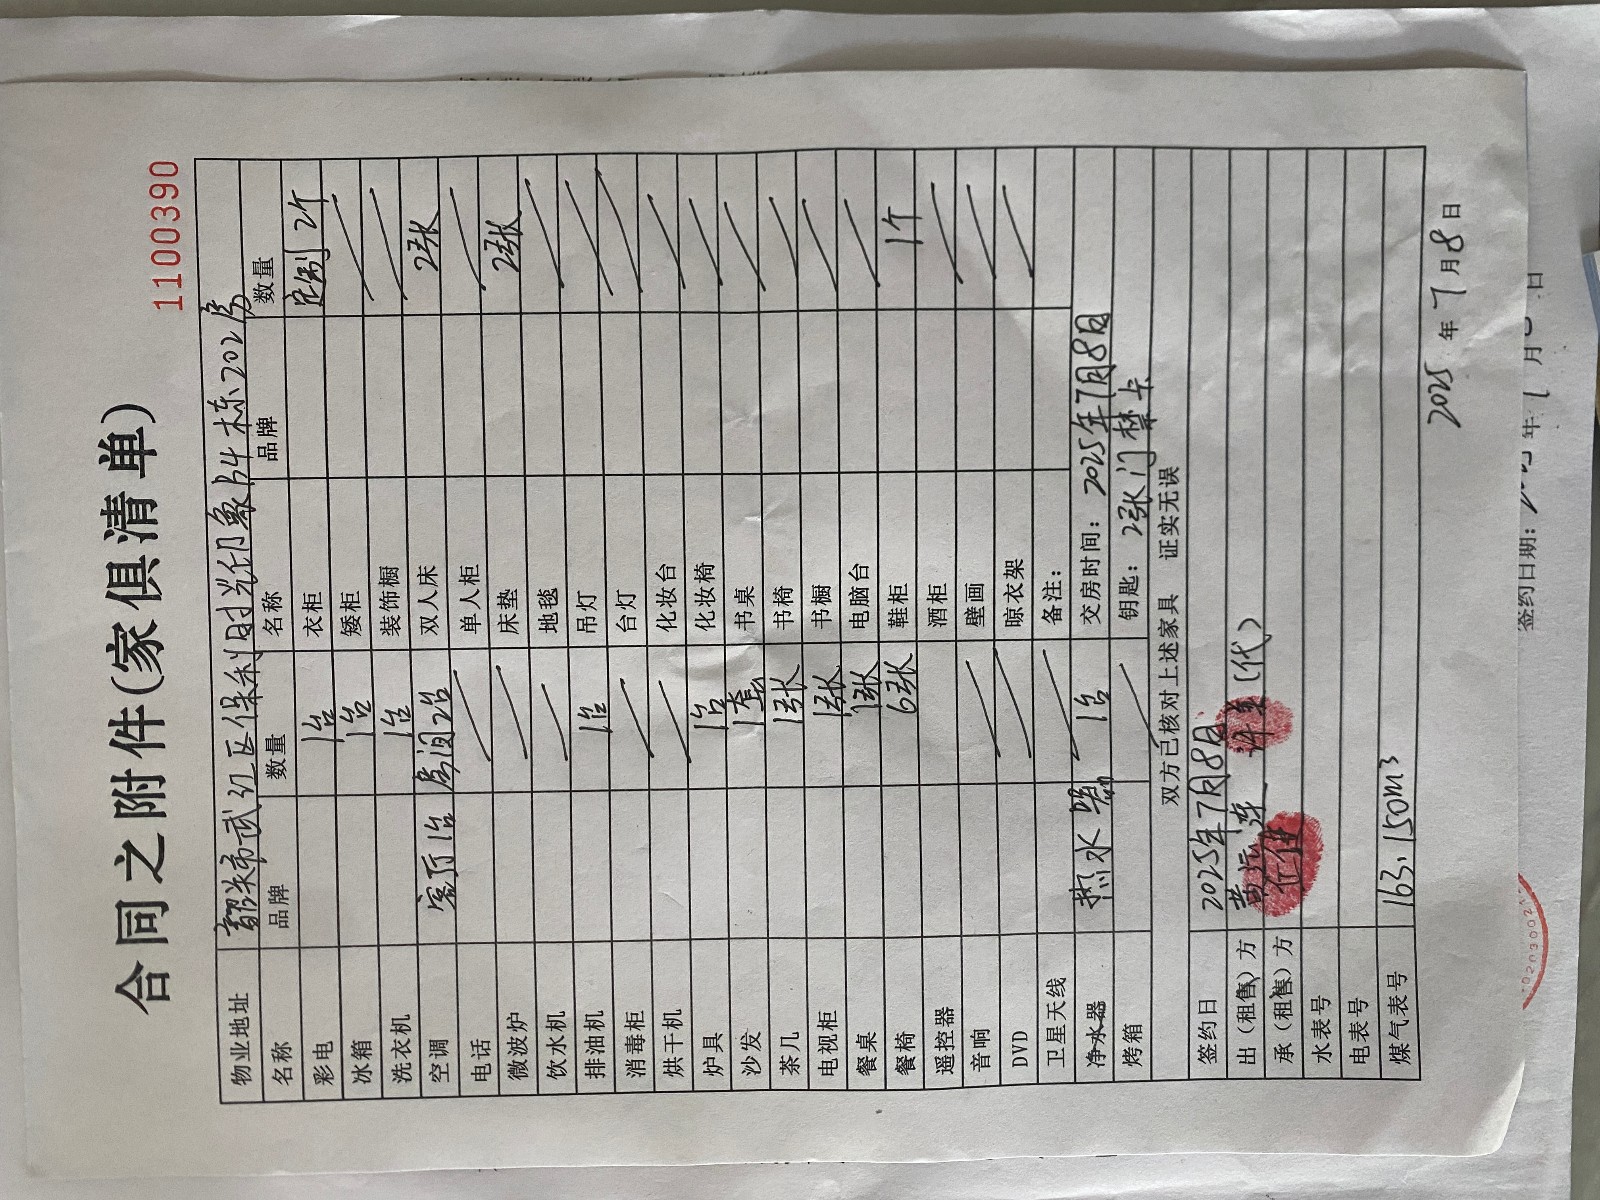 1100390
合同之附件(家俱清单)
物业地址 韶关市武江区保利时光印象B4栋202房
名称 品牌 数量 名称 品牌 数量
彩电 1台 衣柜 定制 2个
冰箱 1台 矮柜
洗衣机 1台 装饰橱
空调 客厅1台 房间2台 双人床 2张
电话 单人柜
微波炉 床垫 2张
饮水机 地毯
排油机 1台 吊灯
消毒柜 台灯
烘干机 化妆台
炉具 1台 化妆椅
沙发 1套 书桌
茶几 1张 书椅
电视柜 1张 书橱
餐桌 1张 电脑台
餐椅 6张 鞋柜 1个
遥控器 酒柜
音响 壁画
DVD 晾衣架
卫星天线 备注:
净水器 热水器 1台 交房时间: 2025年7月8日
烤箱 钥匙: 2张门禁卡
双方已核对上述家具 证实无误
签约日 2025年7月8日
出(租售)方 (代)
承(租售)方
水表号
电表号
煤气表号 163.150m³
2025年7月8日
签约日期: 年 月 日